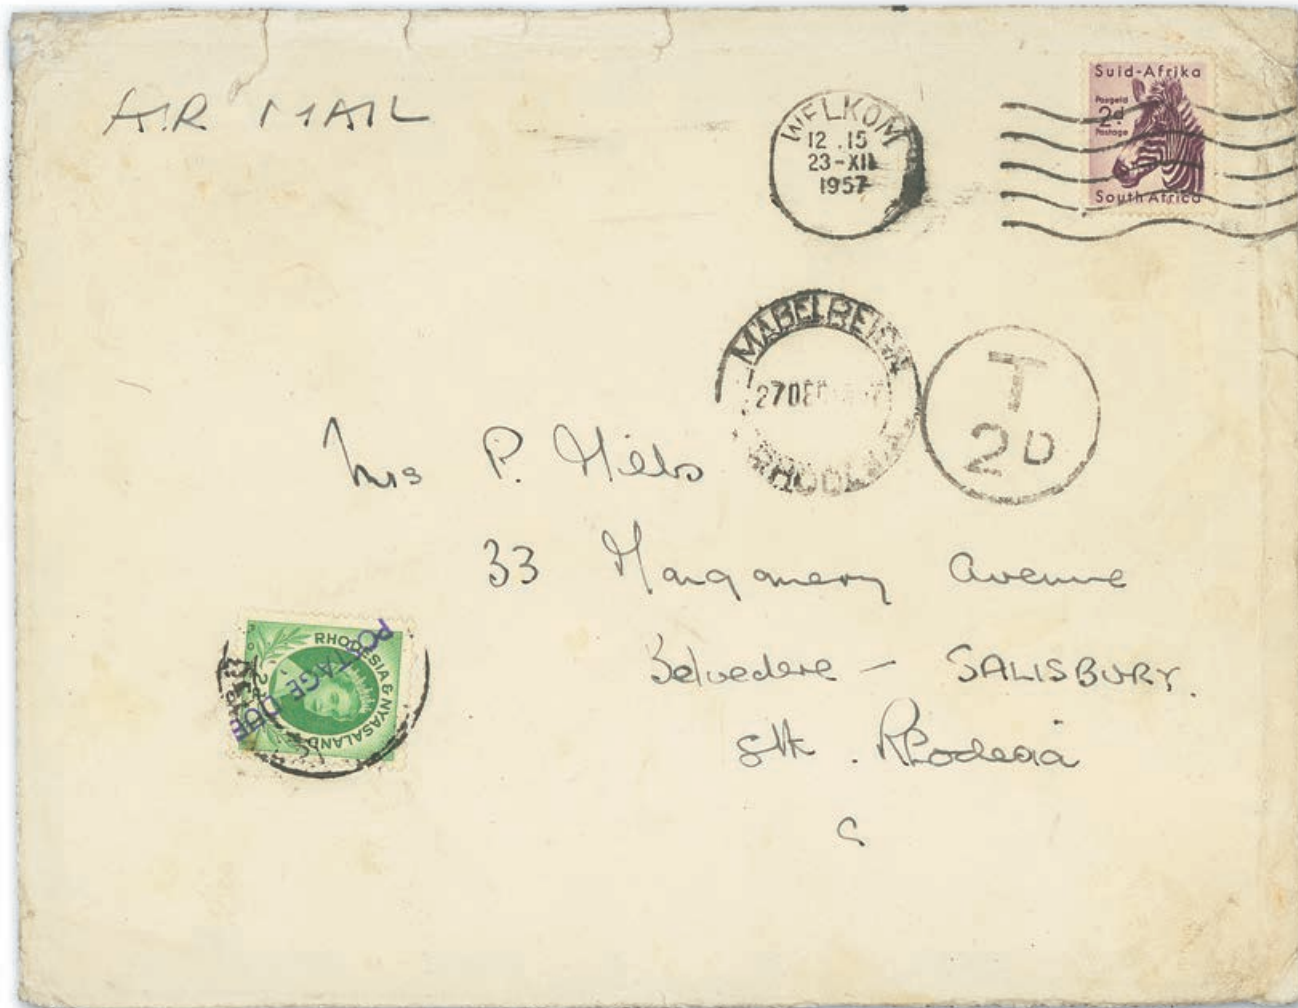 AIR MAIL
WELKOM
12.15
23-XII
1957
Suid-Afrika
Posgeld
2d
Postage
South Africa
MABELREIGN
27 DEC
T
2D
Mrs P. Hills
33 Avenue
Belvedere – SALISBURY.
Sth. Rhodesia
RHODESIA & NYASALAND
POSTAGE DUE